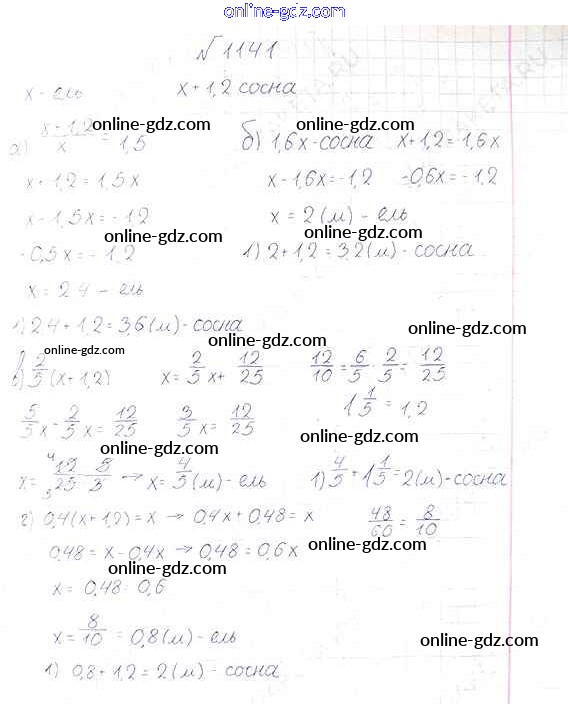 online-gdz.com
№1141
x - ель x + 1,2 сосна
а) (x+1,2)/x = 1,5 б) 1,6x - сосна x+1,2 = 1,6x
online-gdz.com online-gdz.com
x + 1,2 = 1,5x x - 1,6x = -1,2 -0,6x = -1,2
x - 1,5x = -1,2 x = 2 (м) - ель
online-gdz.com online-gdz.com
-0,5x = -1,2 1) 2+1,2 = 3,2 (м) - сосна
online-gdz.com
x = 2,4 - ель
1) 2,4 + 1,2 = 3,6 (м) - сосна
online-gdz.com
online-gdz.com
в) 2/5 (x + 1,2) x = 2/5 x + 12/25 12/10 = 6/5 · 2/5 = 12/25
online-gdz.com
1 1/5 = 1,2
5/5 x - 2/5 x = 12/25 3/5 x = 12/25
online-gdz.com
x = 12/25 · 5/3 → x = 4/5 (м) - ель 1) 4/5 + 1 1/5 = 2 (м) - сосна
online-gdz.com
online-gdz.com
г) 0,4(x+1,2) = x → 0,4x + 0,48 = x 48/60 = 8/10
0,48 = x - 0,4x → 0,48 = 0,6x
online-gdz.com
online-gdz.com
x = 0,48 : 0,6
x = 8/10 = 0,8 (м) - ель
online-gdz.com
1) 0,8 + 1,2 = 2 (м) - сосна
online-gdz.com